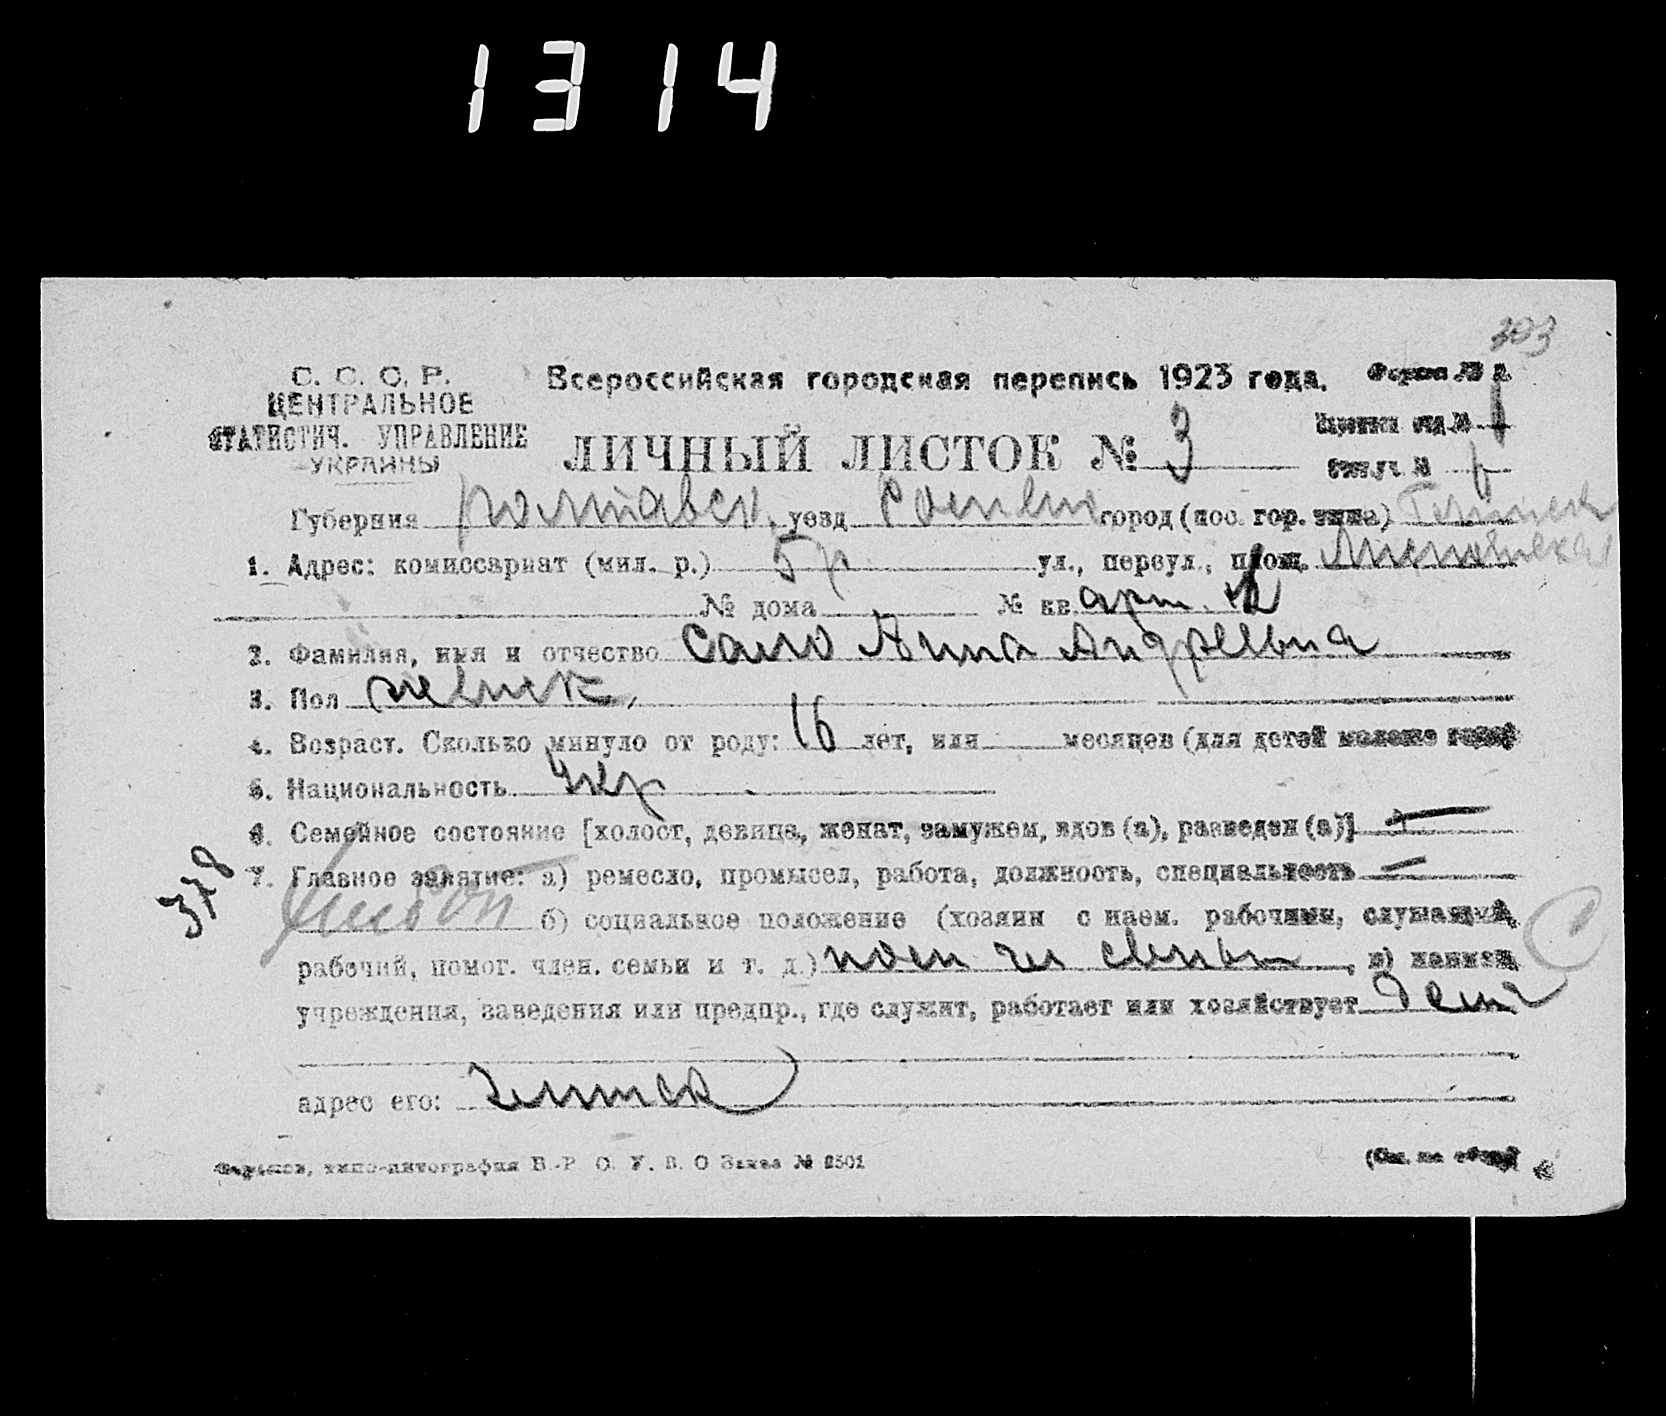 1314
303
С. С. С. Р.
ЦЕНТРАЛЬНОЕ
СТАТИСТИЧ. УПРАВЛЕНИЕ
УКРАИНЫ
Всероссийская городская перепись 1923 года.
Форма № 2.
ЛИЧНЫЙ ЛИСТОК № 3
Губерния Полтавск. уезд город (пос. гор. типа)
1. Адрес: комиссариат (мил. р.) 5 р ул., переул., площ.
№ дома № кв.
2. Фамилия, имя и отчество Сало Анна Андреевна
3. Пол женск.
4. Возраст. Сколько минуло от роду: 16 лет, или месяцев (для детей моложе года)
5. Национальность Укр
6. Семейное состояние [холост, девица, женат, замужем, вдов (а), разведен (а)] —
7. Главное занятие: а) ремесло, промысел, работа, должность, специальность —
378
б) социальное положение (хозяин с наем. рабочими, служащий,
рабочий, помог. член. семьи и т. д.) , в)
учреждения, заведения или предпр., где служит, работает или хозяйствует
адрес его:
Харьков, типо-литография В.-Р. О. У. В. О Заказ № 2501
(См. на обор.)